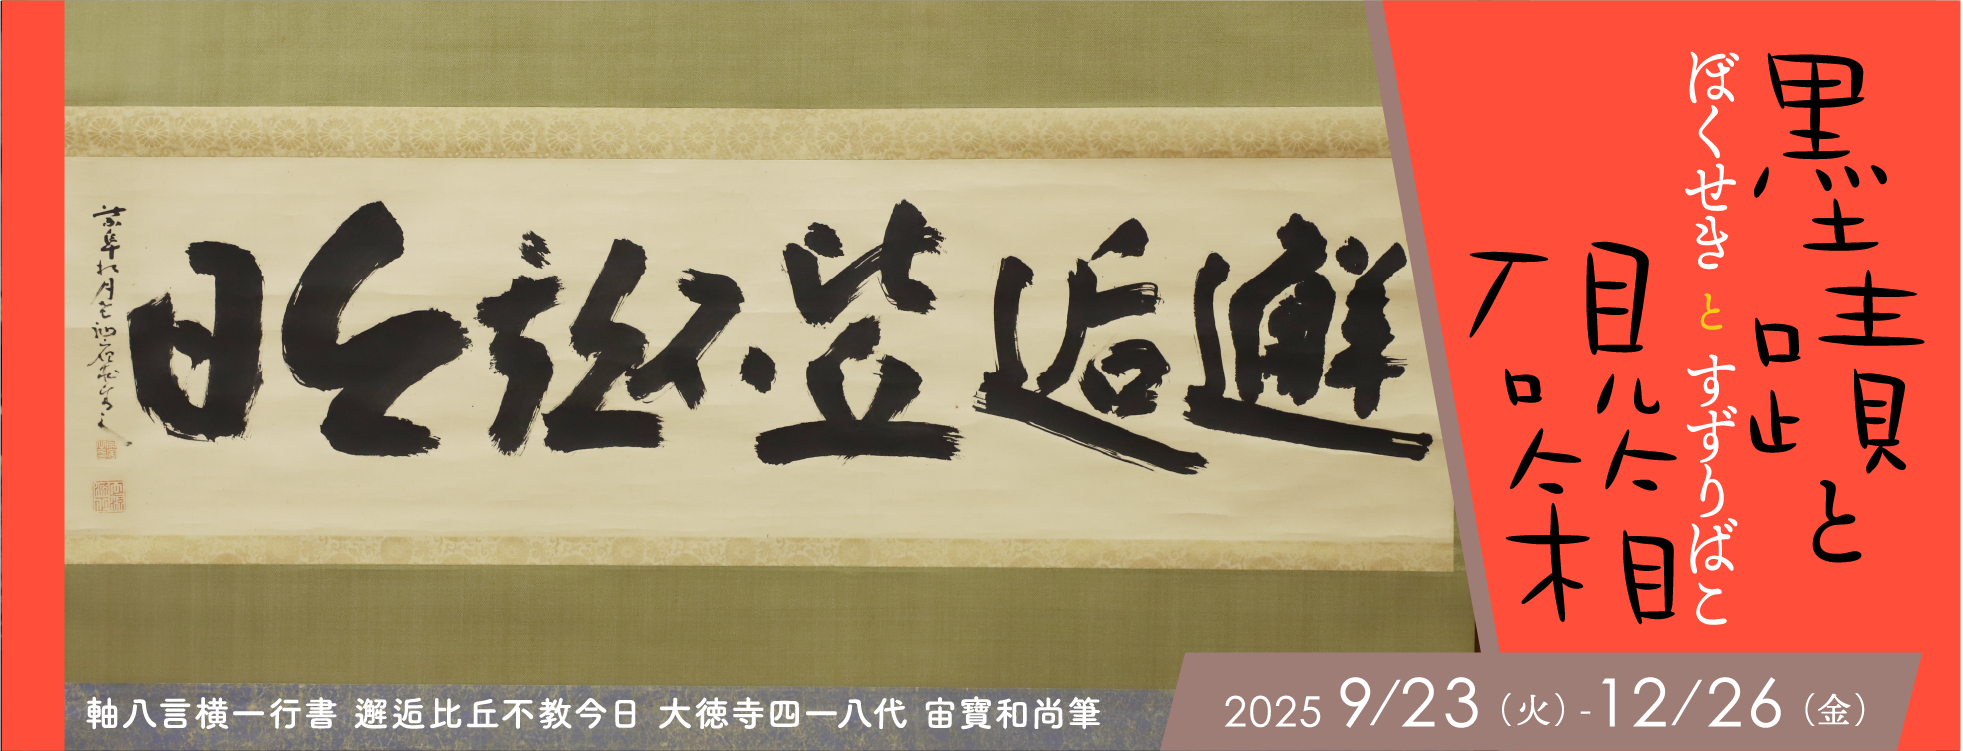 墨蹟と
硯箱
ぼくせき と すずりばこ
邂逅比丘不教今日
軸八言横一行書 邂逅比丘不教今日 大徳寺四一八代 宙寶和尚筆
2025 9/23（火）-12/26（金）